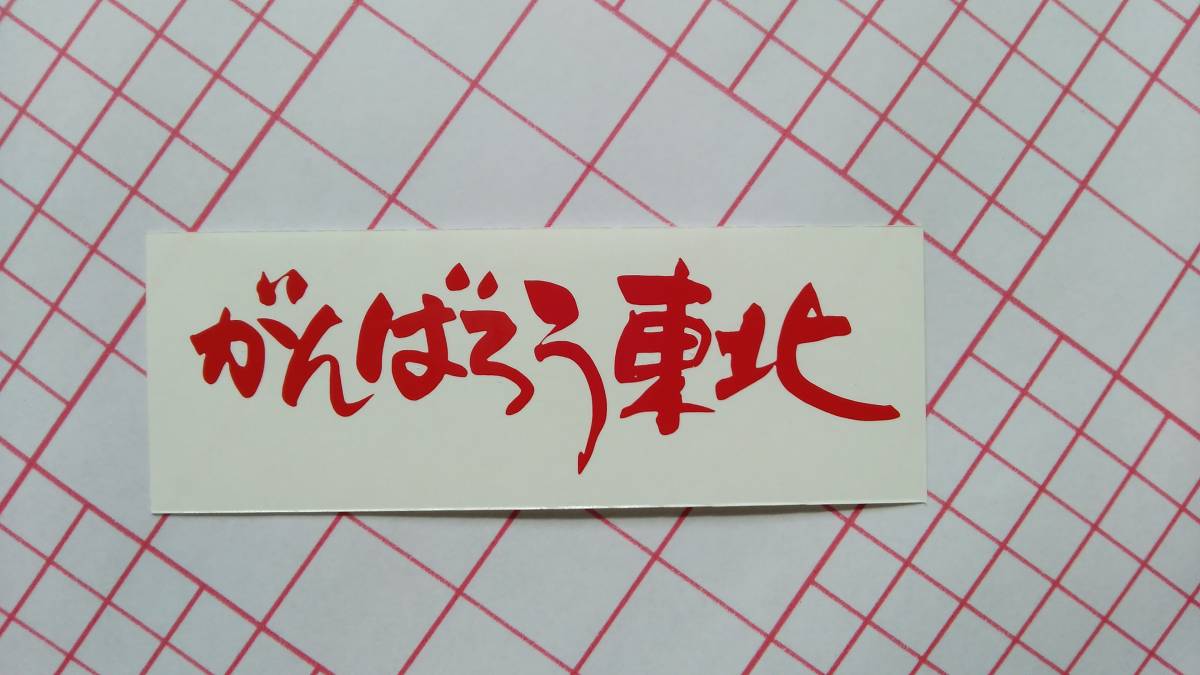 がんばろう東北